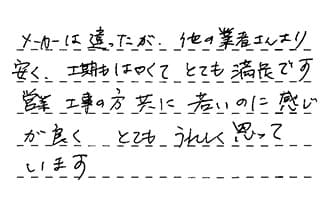 メーカーは違ったが、他の業者さんより
安く、工期もはやくて とても満足です
営業 工事の方 共に 若いのに 感じ
が良く とても うれしく思って
います